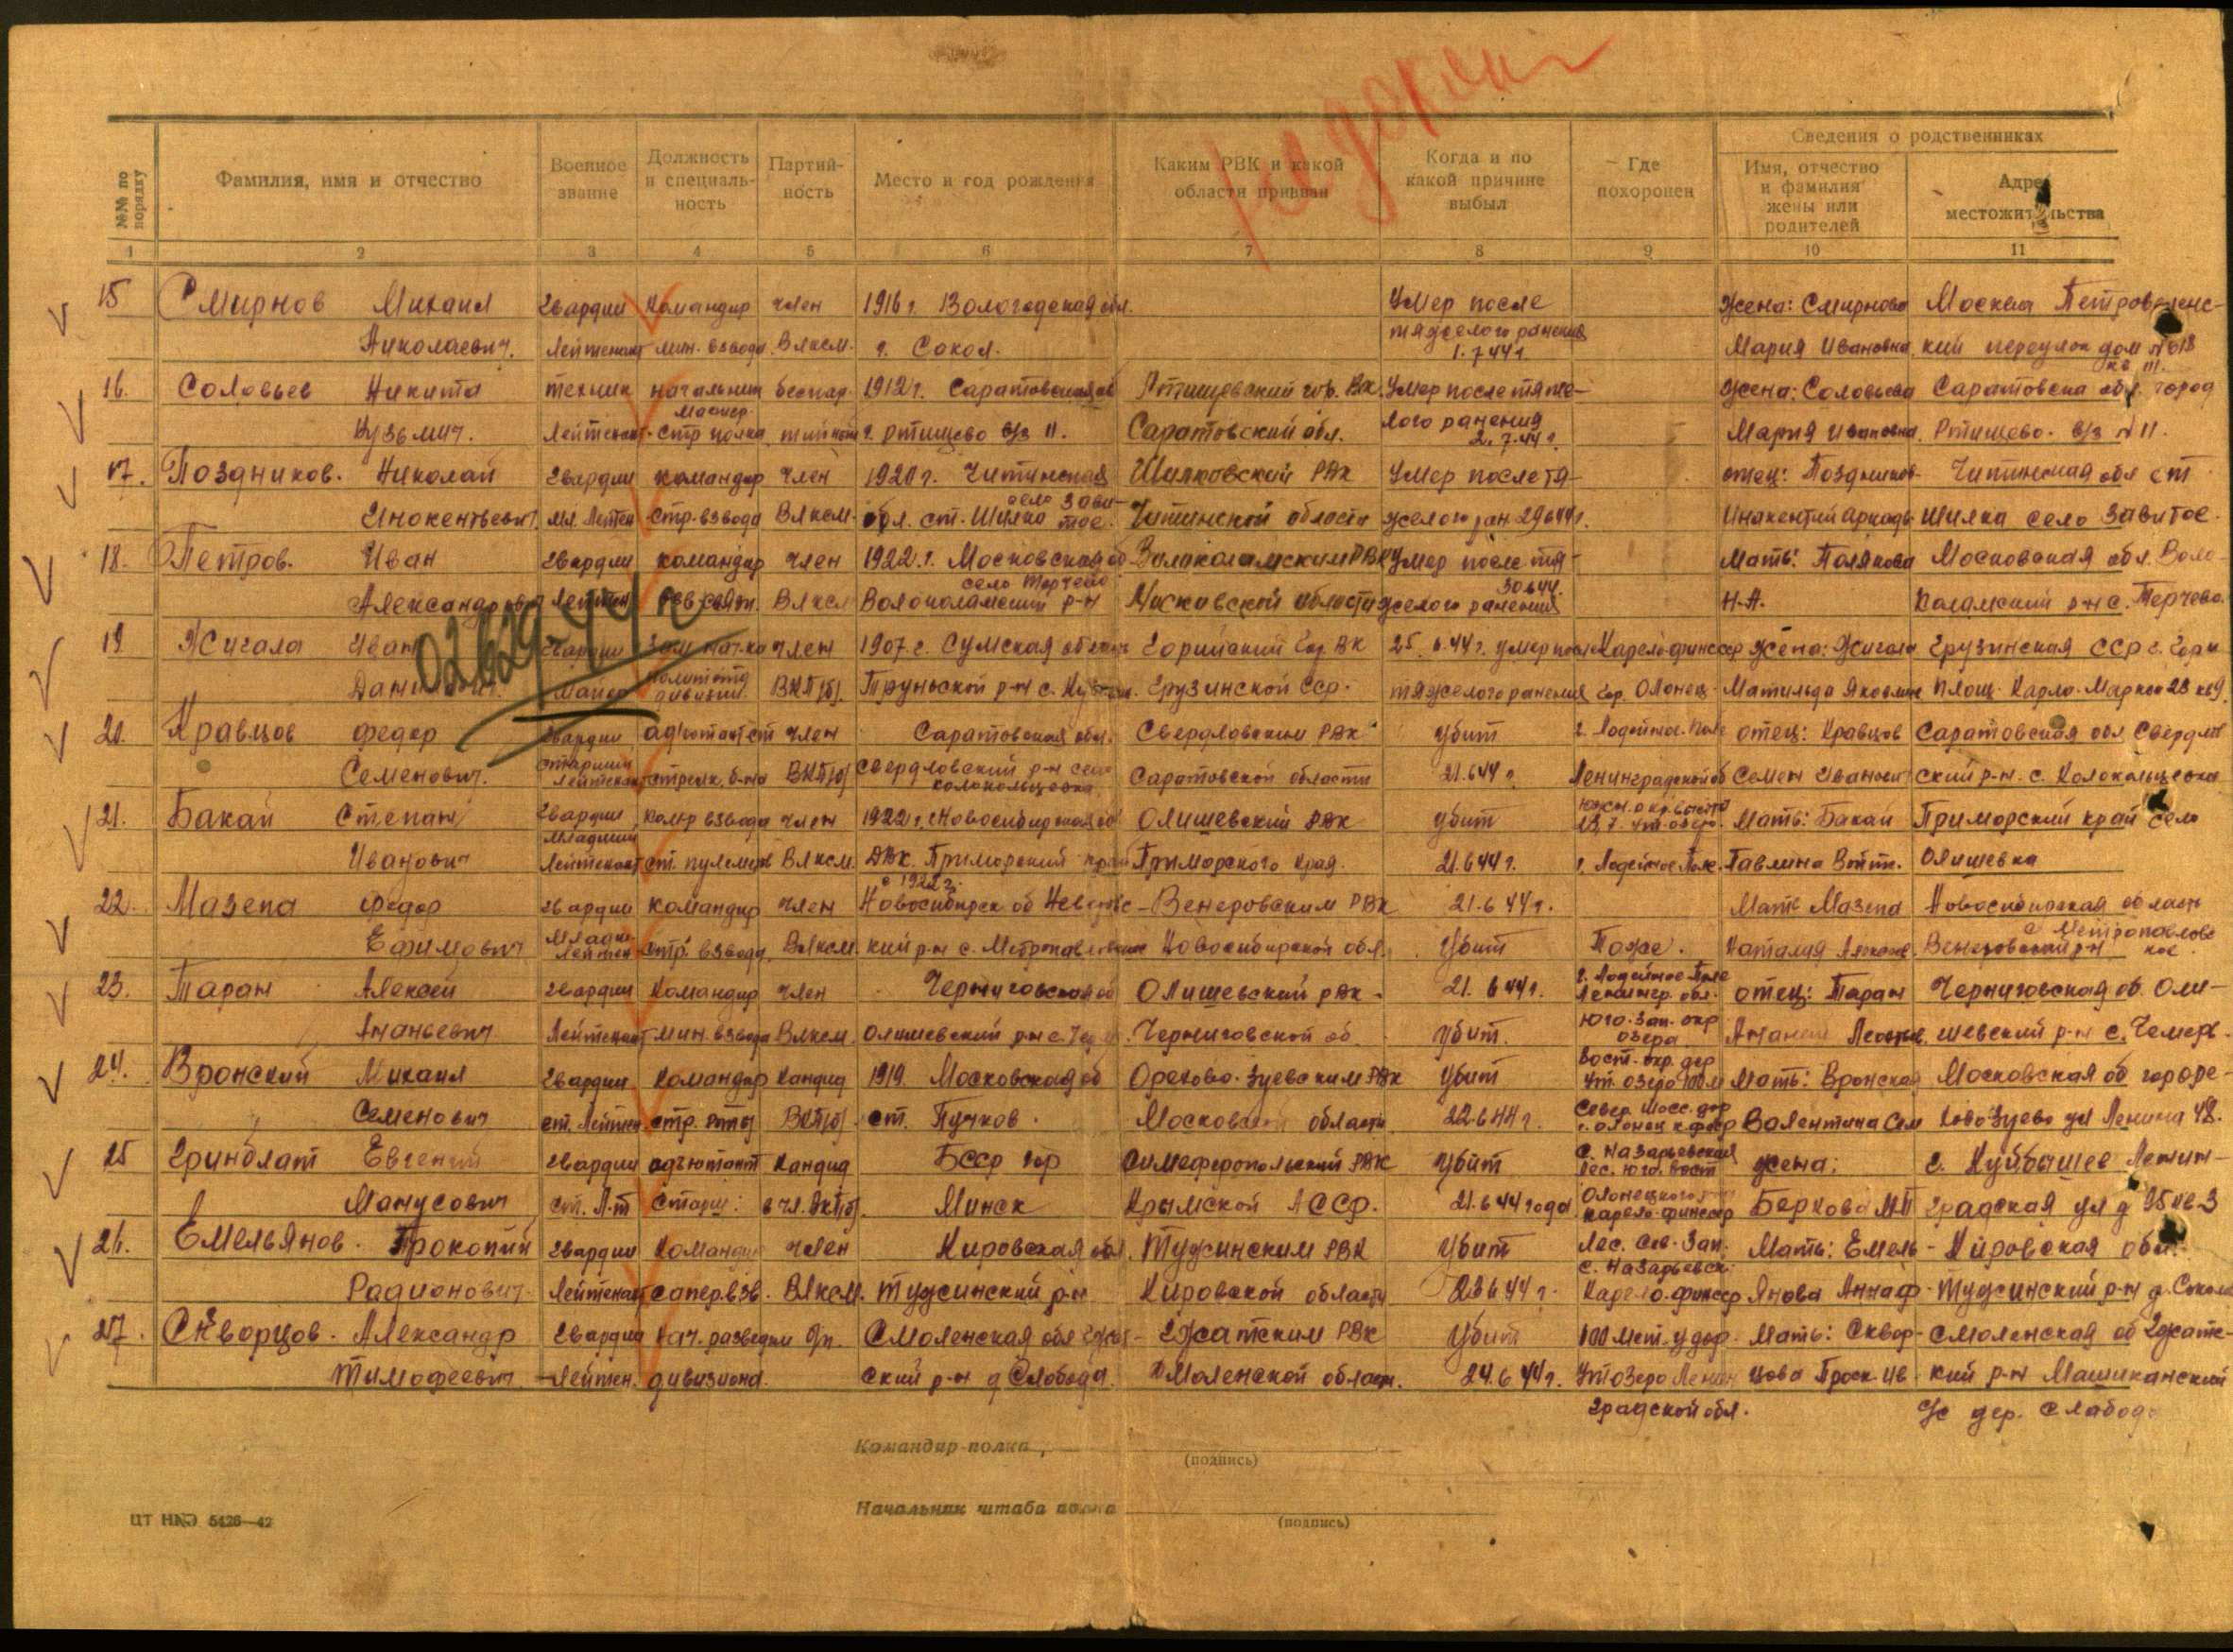 Сведения о родственниках
№№ по порядку
Фамилия, имя и отчество
Военное звание
Должность и специаль-ность
Партий-ность
Место и год рождения
Каким РВК и какой области призван
Когда и по какой причине выбыл
Где похоронен
Имя, отчество и фамилия жены или родителей
Адрес местожительства
1 2 3 4 5 6 7 8 9 10 11
15 Смирнов Михаил Гвардии Командир член 1916 г. Вологодская обл. Умер после Жена: Смирнова Москва
Николаевич. Лейтенант мин. взвода Влксм. г. Сокол. тяжелого ранения 1.7 44 г. Мария Ивановна кий переулок дом №
16. Соловьев Никита техник начальник беспар- 1912 г. Саратовская об Ртищевский гор. Вк. Умер после тяже- Жена: Соловьева Саратовска обл. город
Кузьмич. Лейтенант стр полка тийный г. Ртищево в/з 11. Саратовский обл. лого ранения 2.7.44 г. Мария Ивановна. Ртищево. в/з №11.
17. Поздников. Николай Гвардии командир член 1920 г. Читинская Шилковский РВК Умер после тя- отец: Поздников Читинская обл ст
Инокентьевич. мл. Лейтен стр. взвода Влксм. обл. ст. Шилка село Зави-тое. Читинской области желого ран 29 6 44 г. Инокентий Аркадь Шилка село Завитое.
18. Петров. Иван Гвардии командир член 1922. г. Московская об Волоколамским РВК Умер после тя- Мать: Полякова Московская обл. Воло
Александрович Лейтен Влксм Волоколамский р-н село Терчево Московской области желого ранения 30 6 44. Н.А. коламский р-н с. Терчево.
02629-44г
19 Жигала Иван Гвардии член 1907. г. Сумская область Горийский Гор. ВК 25. 6.44 г. умер посл Карело-финсср Жена: Жигала Грузинская ССР г. Гори
майор политотд дивизии. ВКП(б). р-н с. Грузинской ССР. тяжелого ранения гор. Олонец. Матильда Яковлев. площ. Карла-Маркса 23 кв 9.
20. Кравцов Федор Гвардии адъютант ст член Саратовская обл. Свердловским РВК убит г. Лодейное-Поле отец: Кравцов Саратовская обл. Свердлов
Семенович. старший Лейтенант стрелк. б-на ВКП(б) Свердловский р-н село Колокольцовка Саратовской области 21.6 44 г. Ленинградской об Семен Иванович ский р-н. с. Колокольцовка
21. Бакай Степан Гвардии ком-р взвода член 1922 г. Новосибирская об Олишевский РВК убит Мать: Бакай Приморский край село
Иванович младший Лейтенант ст. пулемет Влксм. ДВК. Приморский край Приморского края. 21.6 44 г. г. Лодейное Поле. Павлина Олишевка
22. Мазепа Федор Гвардии командир член Новосибирск об 1922 г. Венгеровским РВК 21.6 44 г. Мать Мазепа Новосибирская область
Ефимович младш. лейтен стр. взвода. Влксм. кий р-н с. Новосибирской обл. Убит Тоже. Наталия Венгеровский р-н
23. Таран Алексей Гвардии Командир член Черниговская об Олишевский рвк. 21. 6 44 г. г. Лодейное Поле Ленингр. обл. отец: Таран Черниговская об. Оли-
Ананьевич. Лейтенант мин. взвода Влксм. Олишевский р-н с. Черниговской об. Убит. Юго-Зап. окр озера Ананий шевский р-н с. Чемер.
24. Вронский Михаил Гвардии Командир Кандид 1919. Московская об Орехово-Зуевским РВК Убит Вост. окр. дер Мать: Вронская Московская об. город О-
Семенович ст. Лейтен. стр. роты ВКП(б). ст. Пучков. Московской области 22.6 44 г. Валентина Сем хово Зуево ул Ленина 48.
25 Гринблат Евгений Гвардии адъютант Кандид БССР гор Симферопольский РВК Убит с. Назарьевская Лес. юго. вост Жена: г. Куйбышев Ленин-
Манусович ст. Л-т старш: в чл. ВКП(б). Минск Крымской АССР. 21.6 44 года Олонецкого карело-финсср Беркова МП градская ул д 95 кв 3
26. Емельянов. Прокопий Гвардии Командир член Кировская обл. Тужинским РВК Убит Лес. Сев-Зап. с. Назарьевск. Мать: Емель- Кировская обл.
Радионович. Лейтенант сапер. взв. Влксм. Тужинский р-н Кировской области 23 6 44 г. Карело-финсср янова Анна Ф. Тужинский р-н д.
27. Скворцов. Александр Гвардии нач. разведки Смоленская обл Гжат- Гжатским РВК Убит 100 мет. у дор. Мать: Сквор- Смоленская об Гжатс-
Тимофеевич. Лейтен. дивизиона. ский р-н д Слобода. Смоленской област. 24.6 44 г. Утозеро Ленин цова Прос. Ив. кий р-н Машиканский
градской обл. с/с дер. Слабода
Командир полка,
(подпись)
Начальник штаба полка
(подпись)
ЦТ НКО 5426—42